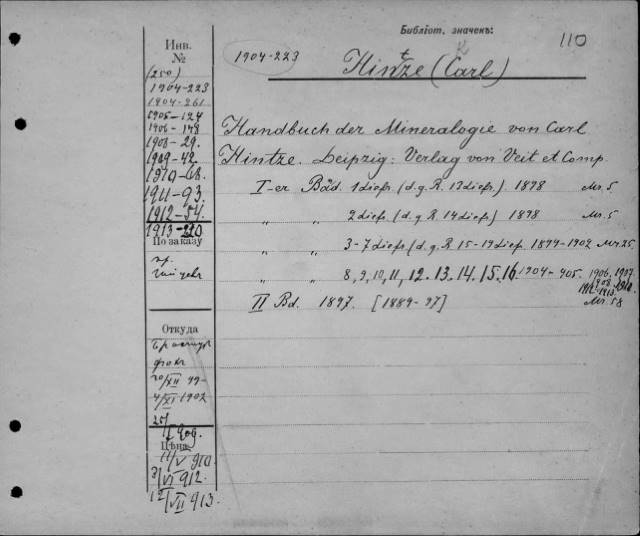 Библіот. значекъ:
110
Инв.
№
1904-223
Hintze (Carl)
(250)
1904-223
1904-261
1905-124
1906-148
1908-29.
1909-42.
1910-68.
1911-93.
1912-54.
1913-220
Handbuch der Mineralogie von Carl
Hintze. Leipzig: Verlag von Veit et Comp.
I-er Bd. 1 Lief. (d. g. R. 13 Lief.) 1898 Mr. 5
„ „ 2 Lief. (d. g. R. 14 Lief.) 1898 Mr. 5
„ „ 3-7 Lief. (d. g. R. 15-19 Lief. 1899-1902 Mr. 25.
„ „ 8, 9, 10, 11, 12. 13. 14. 15. 16 1904-905. 1906. 1907.
1908
II Bd. 1897. [1889-97] Mr. 58
По заказу
Откуда
20/XII 99-
4/XI 1902
25/
II 909.
Цѣна.
11/V 910
3/VI 912.
12/VII 913.